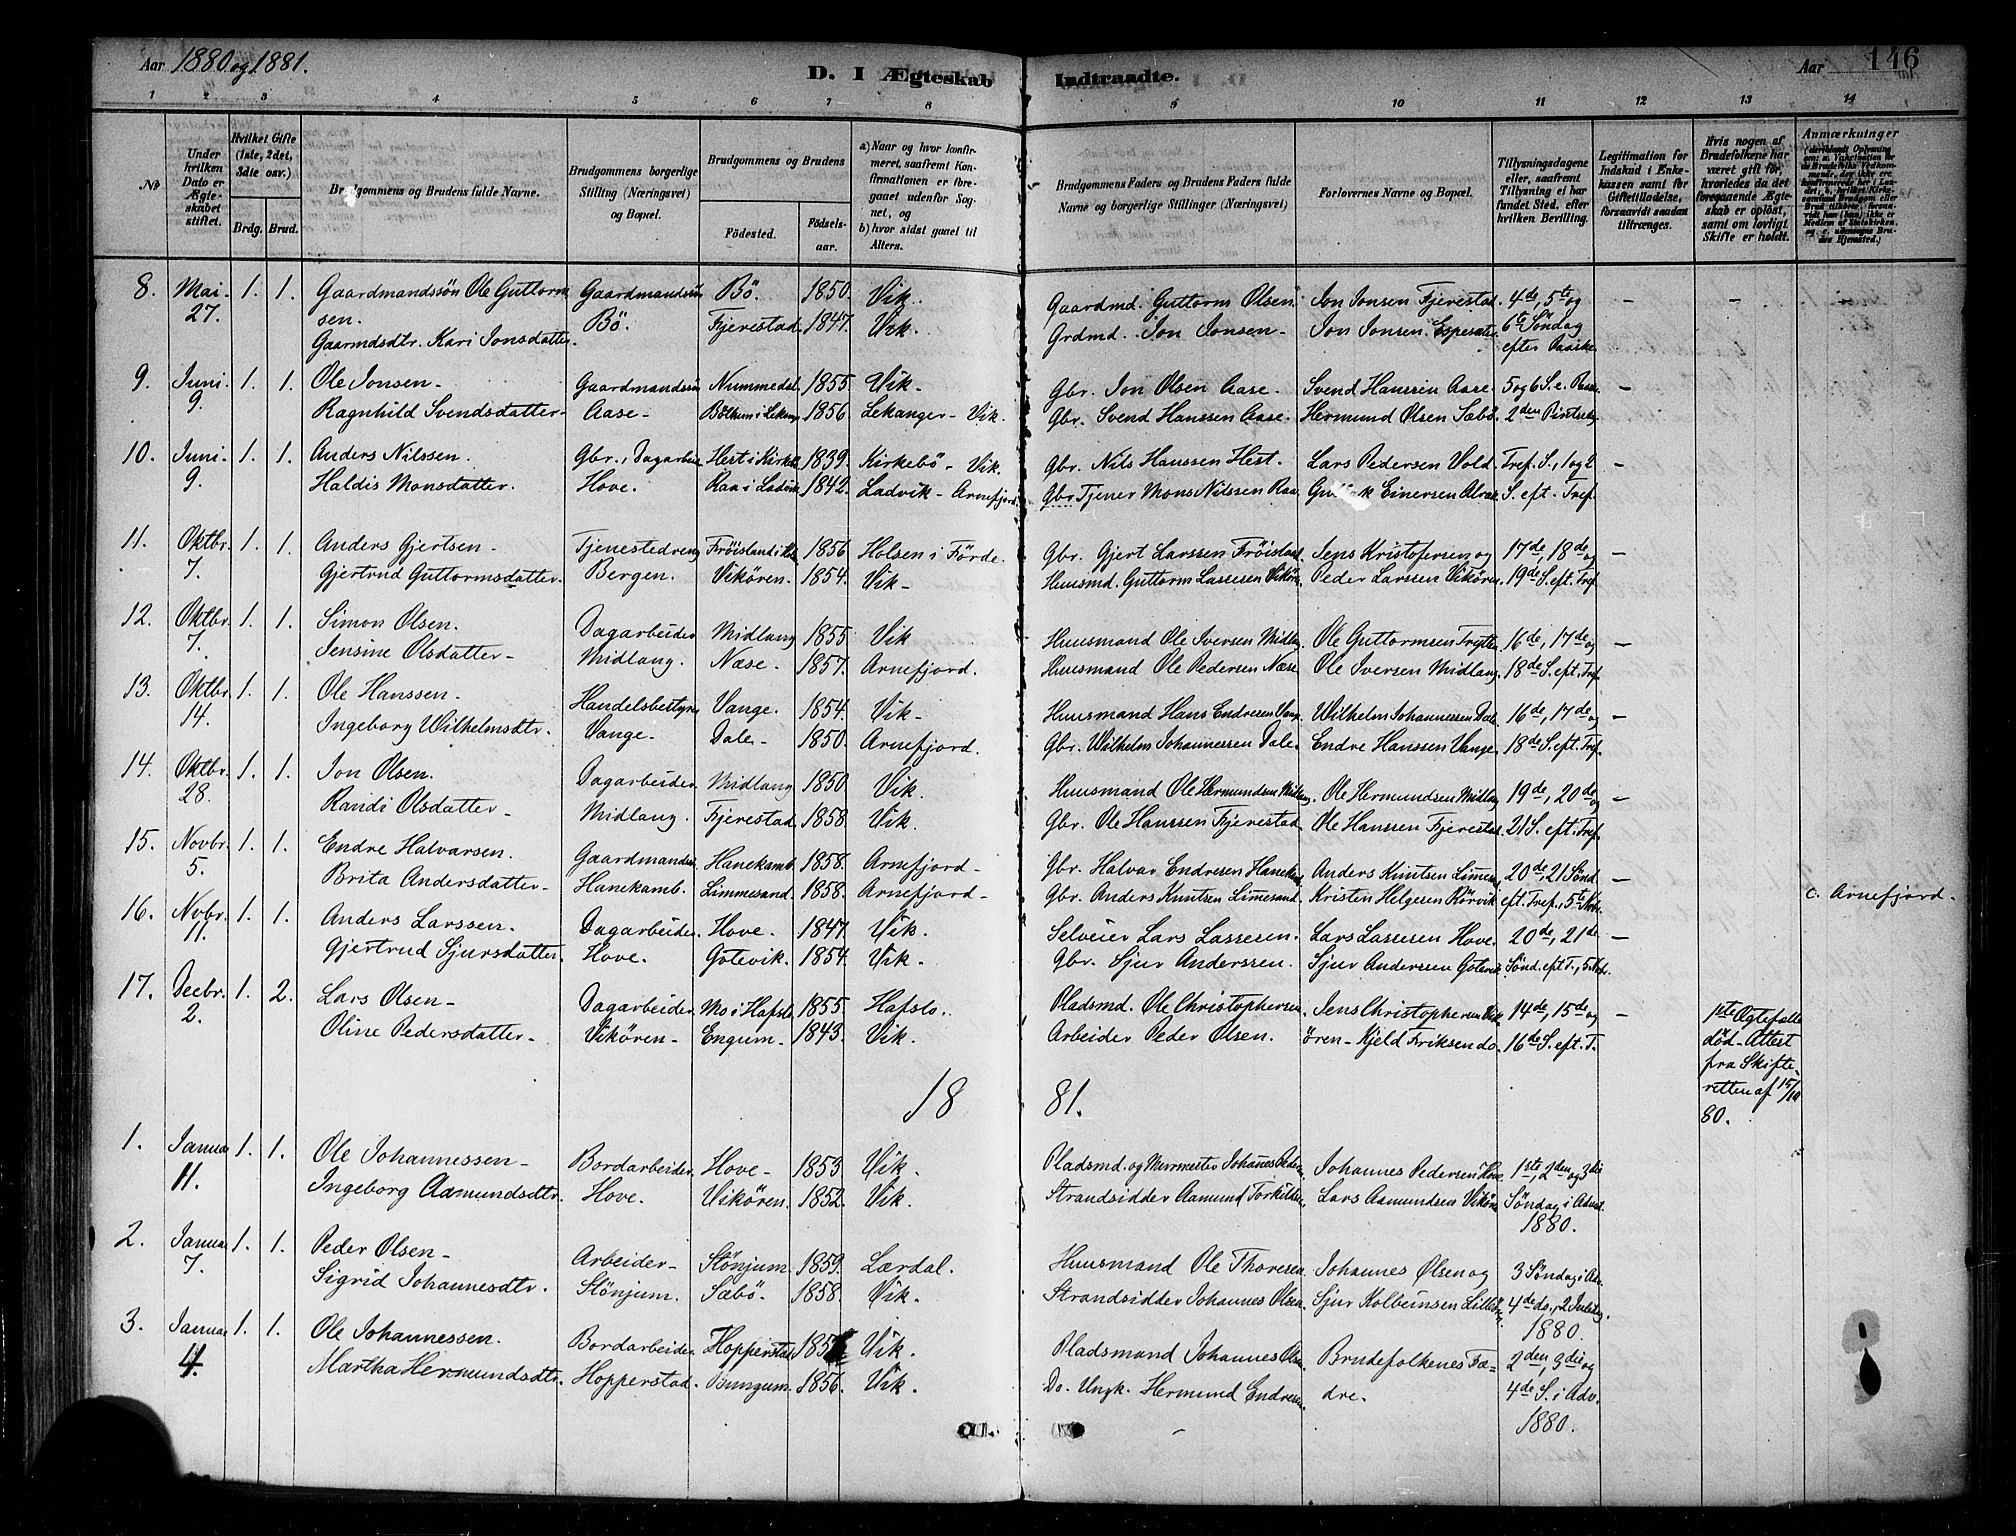 Aar 1880 og 1881.
D. I Ægteskab Indtraadte.
Aar 146
1 2 3 4 5 6 7 8 9 10 11 12 13 14
No
Under hvilken Dato er Ægteskabet stiftet.
Hvilket Gifte (1ste, 2det, 3die osv.)
Brdg. Brud.
Brudgommens og Brudens fulde Navne.
Brudgommens borgerlige Stilling (Næringsvei) og Bopæl.
Brudgommens og Brudens
Fødested. Fødselsaar.
a) Naar og hvor konfirmeret, saafremt Konfirmationen er foregaaet udenfor Sognet, og
b) hvor sidst gaaet til Alters.
Brudgommens Faders og Brudens Faders fulde Navne og borgerlige Stillinger (Næringsvei)
Forlovernes Navne og Bopæl.
Tillysningsdagene eller, saafremt Tillysning ei har fundet Sted, efter hvilken Bevilling.
Legitimation for Indskud i Enkekassen samt for Giftetilladelse, forsaavidt saadan tiltrænges.
Hvis nogen af Brudefolkene har været gift før, hvorledes da det foregaaende Ægteskab er opløst, samt om lovligt Skifte er holdt.
Anmærkninger
8. Mai 27. 1. 1. Gaardmandssön Ole Guttormsen. Gaardmandssön Bö. 1850. Vik. Gaardmd. Guttorm Olsen Jon Jonsen Fjerestad 4de, 5te og – –
Gaarmdsdtr. Kari Jonsdatter Bö. Fjerestad 1847. Vik. Grdmd. Jon Jonsen Jon Jonsen 6te Söndag efter Paaske
9. Juni 9. 1. 1. Ole Jonsen – Gaardmandssön Nummedal 1855 Vik. Gbr. Jon Olsen Aase. Svend Hanssen Aase. 5 og 6 S. e. Paas. –
Ragnhild Svendsdatter Aase – 1856 Lekanger – Vik. Gbr. Svend Hanssen Aase. Hermund Olsen Sæbö. 2den Pintsedag
10. Juni 9. 1. 1. Anders Nilssen. Gbr., Dagarbeider Hest i Kirkeb 1839. Kirkebö – Vik. Gbr. Nils Hanssen Hest. Lars Pedersen Vold. Tref. S., 1 og 2 –
Haldis Monsdatter. Hove. Raa i Ladvik 1842. Ladvik – Arnefjord. Gbr Tjener Mons Nilssen Raa Einersen S. eft. Tref.
11. Oktbr. 7. 1. 1. Anders Gjertsen – Tjenestedreng 1856 Holsen i Förde. Gbr. Gjert Larssen Fröisland Jens Kristofersen og 17de 18de og –
Gjertrud Guttormsdatter. Bergen. Vikören. 1854. Vik – Huusmd. Guttorm Lassesen Vikören Peder Larssen Vikören 19de S. eft. Tref.
12. Oktbr. 7. 1. 1. Simon Olsen. Dagarbeider Midlang 1855 Vik Huusmand Ole Iversen Midlang Ole Guttormsen 16de, 17de og –
Jensine Olsdatter – Midlang. Næse. 1857. Arnefjord. Huusmand Ole Pedersen Næse Ole Iversen Midlang 18de S. eft. Tref.
13. Oktbr. 14. 1. 1. Ole Hanssen. Handelsbestyrer Vange. 1854. Vik – Huusmand Hans Endresen Vange. Wilhelm Johannessen Dale 16de, 17de og –
Ingeborg Wilhelmsdtr. Vange – Dale – 1850. Arnefjord. Gbr. Wilhelm Johannessen Dale. Endre Hanssen Vange 18de S. eft. Tref.
14. Oktbr. 28. 1. 1. Jon Olsen. Dagarbeider. Midlang 1850. Vik. Huusmand Ole Hermundsen Midlang Ole Hermundsen Midlang 19de, 20de og –
Randi Olsdatter – Midlang. Fjerestad. 1858. Vik. Gbr. Ole Hanssen Fjerestad Ole Hanssen Fjerestad 21 S. eft. Tref.
15. Novbr. 5. 1. 1. Endre Halvarsen. Gaardmandss. Hanekamb 1858. Arnefjord – Gbr. Halvar Endresen Hanekamb Anders Knutsen Limmesand 20de, 21 Sönd –
Brita Andersdatter – Hanekamb. Limmesand. 1858. Arnefjord – Gbr. Anders Knutsen Limesand Kristen Helgesen Rörvik eft. Tref., 5te c. Arnefjord.
16. Novbr. 11. 1. 1. Anders Larssen. Dagarbeider. Hove. 1847. Vik. Selveier Lars Lassesen. Lars Lassesen Hove. 20de, 21de –
Gjertrud Sjursdatter. Hove. Gotevik. 1854. Vik. Gbr. Sjur Anderssen. Sjur Anderssen Gotevik Sönd. eft T., 5. Nov.
17. Decbr. 2. 1. 2. Lars Olsen – Dagarbeider Mo i Hafslo 1855. Hafslo. Pladsmd. Ole Christophersen Jens Christophersen Vik 14de, 15de og – 1ste Ægtefælle
Oline Pedersdatter – Vikören – Engum. 1843. Vik. Arbeider Peder Olsen. ören – Kjeld Eriksen do. 16de S. eft. T. död – Attest
fra Skifte-
retten af 15/10
80.
18 81.
1. Januar 11. 1. 1. Ole Johannessen – Bordarbeider. Hove – 1853 Vik. Pladsmd. og Murmester Johannes Peders. Johannes Pedersen Hove 1ste, 2den og 3die
Ingeborg Aamundsdtr. Hove. Vikören. 1852. Vik. Strandsidder Aamund Torkildsen Lars Aamundsen Vikören Söndag i Advent
1880.
2. Januar 7. 1. 1. Peder Olsen – Arbeider – Stönjum 1859. Lærdal. Huusmand Ole Thoresen Johannes Olsen og 3 Söndag i Adv.
Sigrid Johannesdtr. Stönjum. Sæbö. 1858. Vik. Strandsidder Johannes Olsen Sjur Kolbeinsen 4de do., 2 Juledag
1880.
3. Januar 4. 1. 1. Ole Johannessen. Bordarbeider. Hopperstad Vik. Pladsmand Johannes Olsen Brudefolkenes Fæ- 2den, 3die og
Martha Hermundsdtr. Hopperstad. Bungum. 1856. Vik. Do. Ungk. Hermund Endresen dre. 4de S. i Adv.
1880.